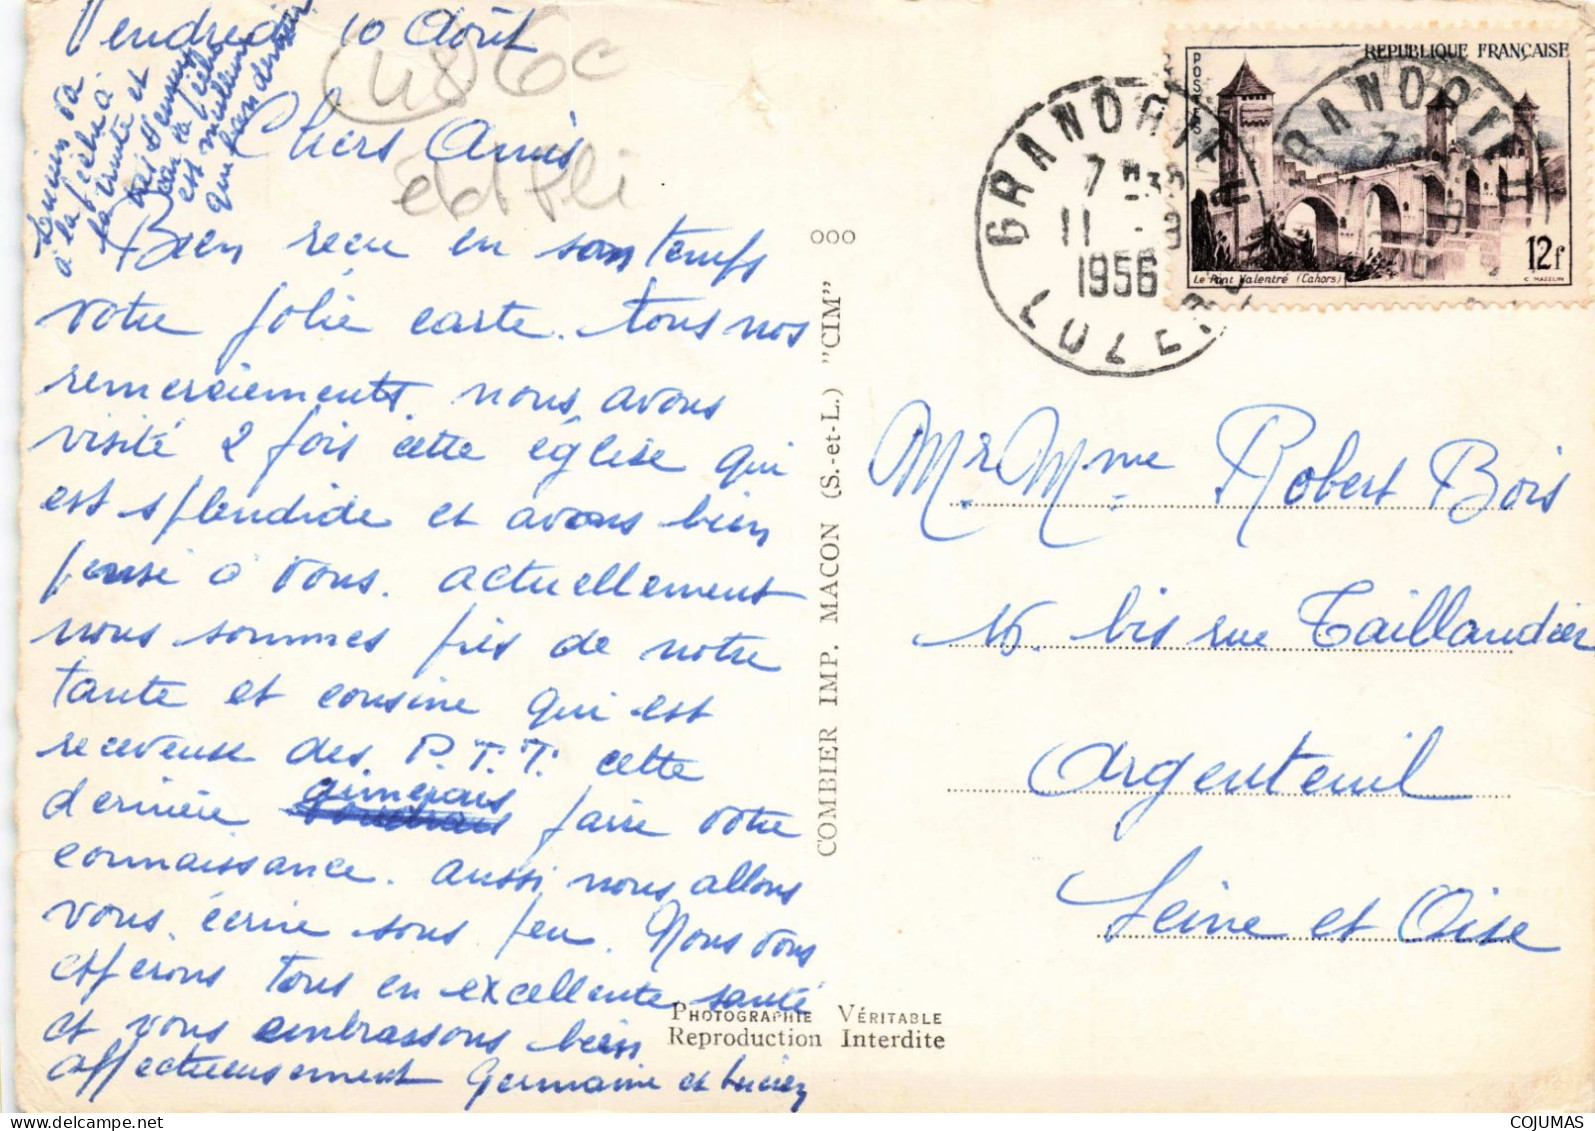 Vendredi 10 Août
48 6c
Chers Amis
Lucien va
à la pêche à
la truite et
car la pêche
est meilleure
qu'hier
Bien reçu en son temps
votre jolie carte. tous nos
remerciements. nous avons
visité 2 fois cette église qui
est splendide et avons bien
pensé à vous. actuellement
nous sommes près de notre
tante et cousine qui est
receveuse des P.T.T. cette
dernière aimerais faire votre
connaissance. aussi nous allons
vous écrire sous peu. Nous vous
espérons tous en excellente santé
et vous embrassons bien
affectueusement Germaine et Lucien
000
COMBIER IMP. MACON (S.-et-L.) "CIM"
PHOTOGRAPHIE VÉRITABLE
Reproduction Interdite
REPUBLIQUE FRANÇAISE
POSTES
12f
Le Pont Valentré (Cahors)
C. MAZELIN
GRANDRIEU
7 H 30
11 - 8
1956
LOZERE
Mr Mme Robert Bois
16 bis rue Taillandier
Argenteuil
Seine et Oise
COJUMAS